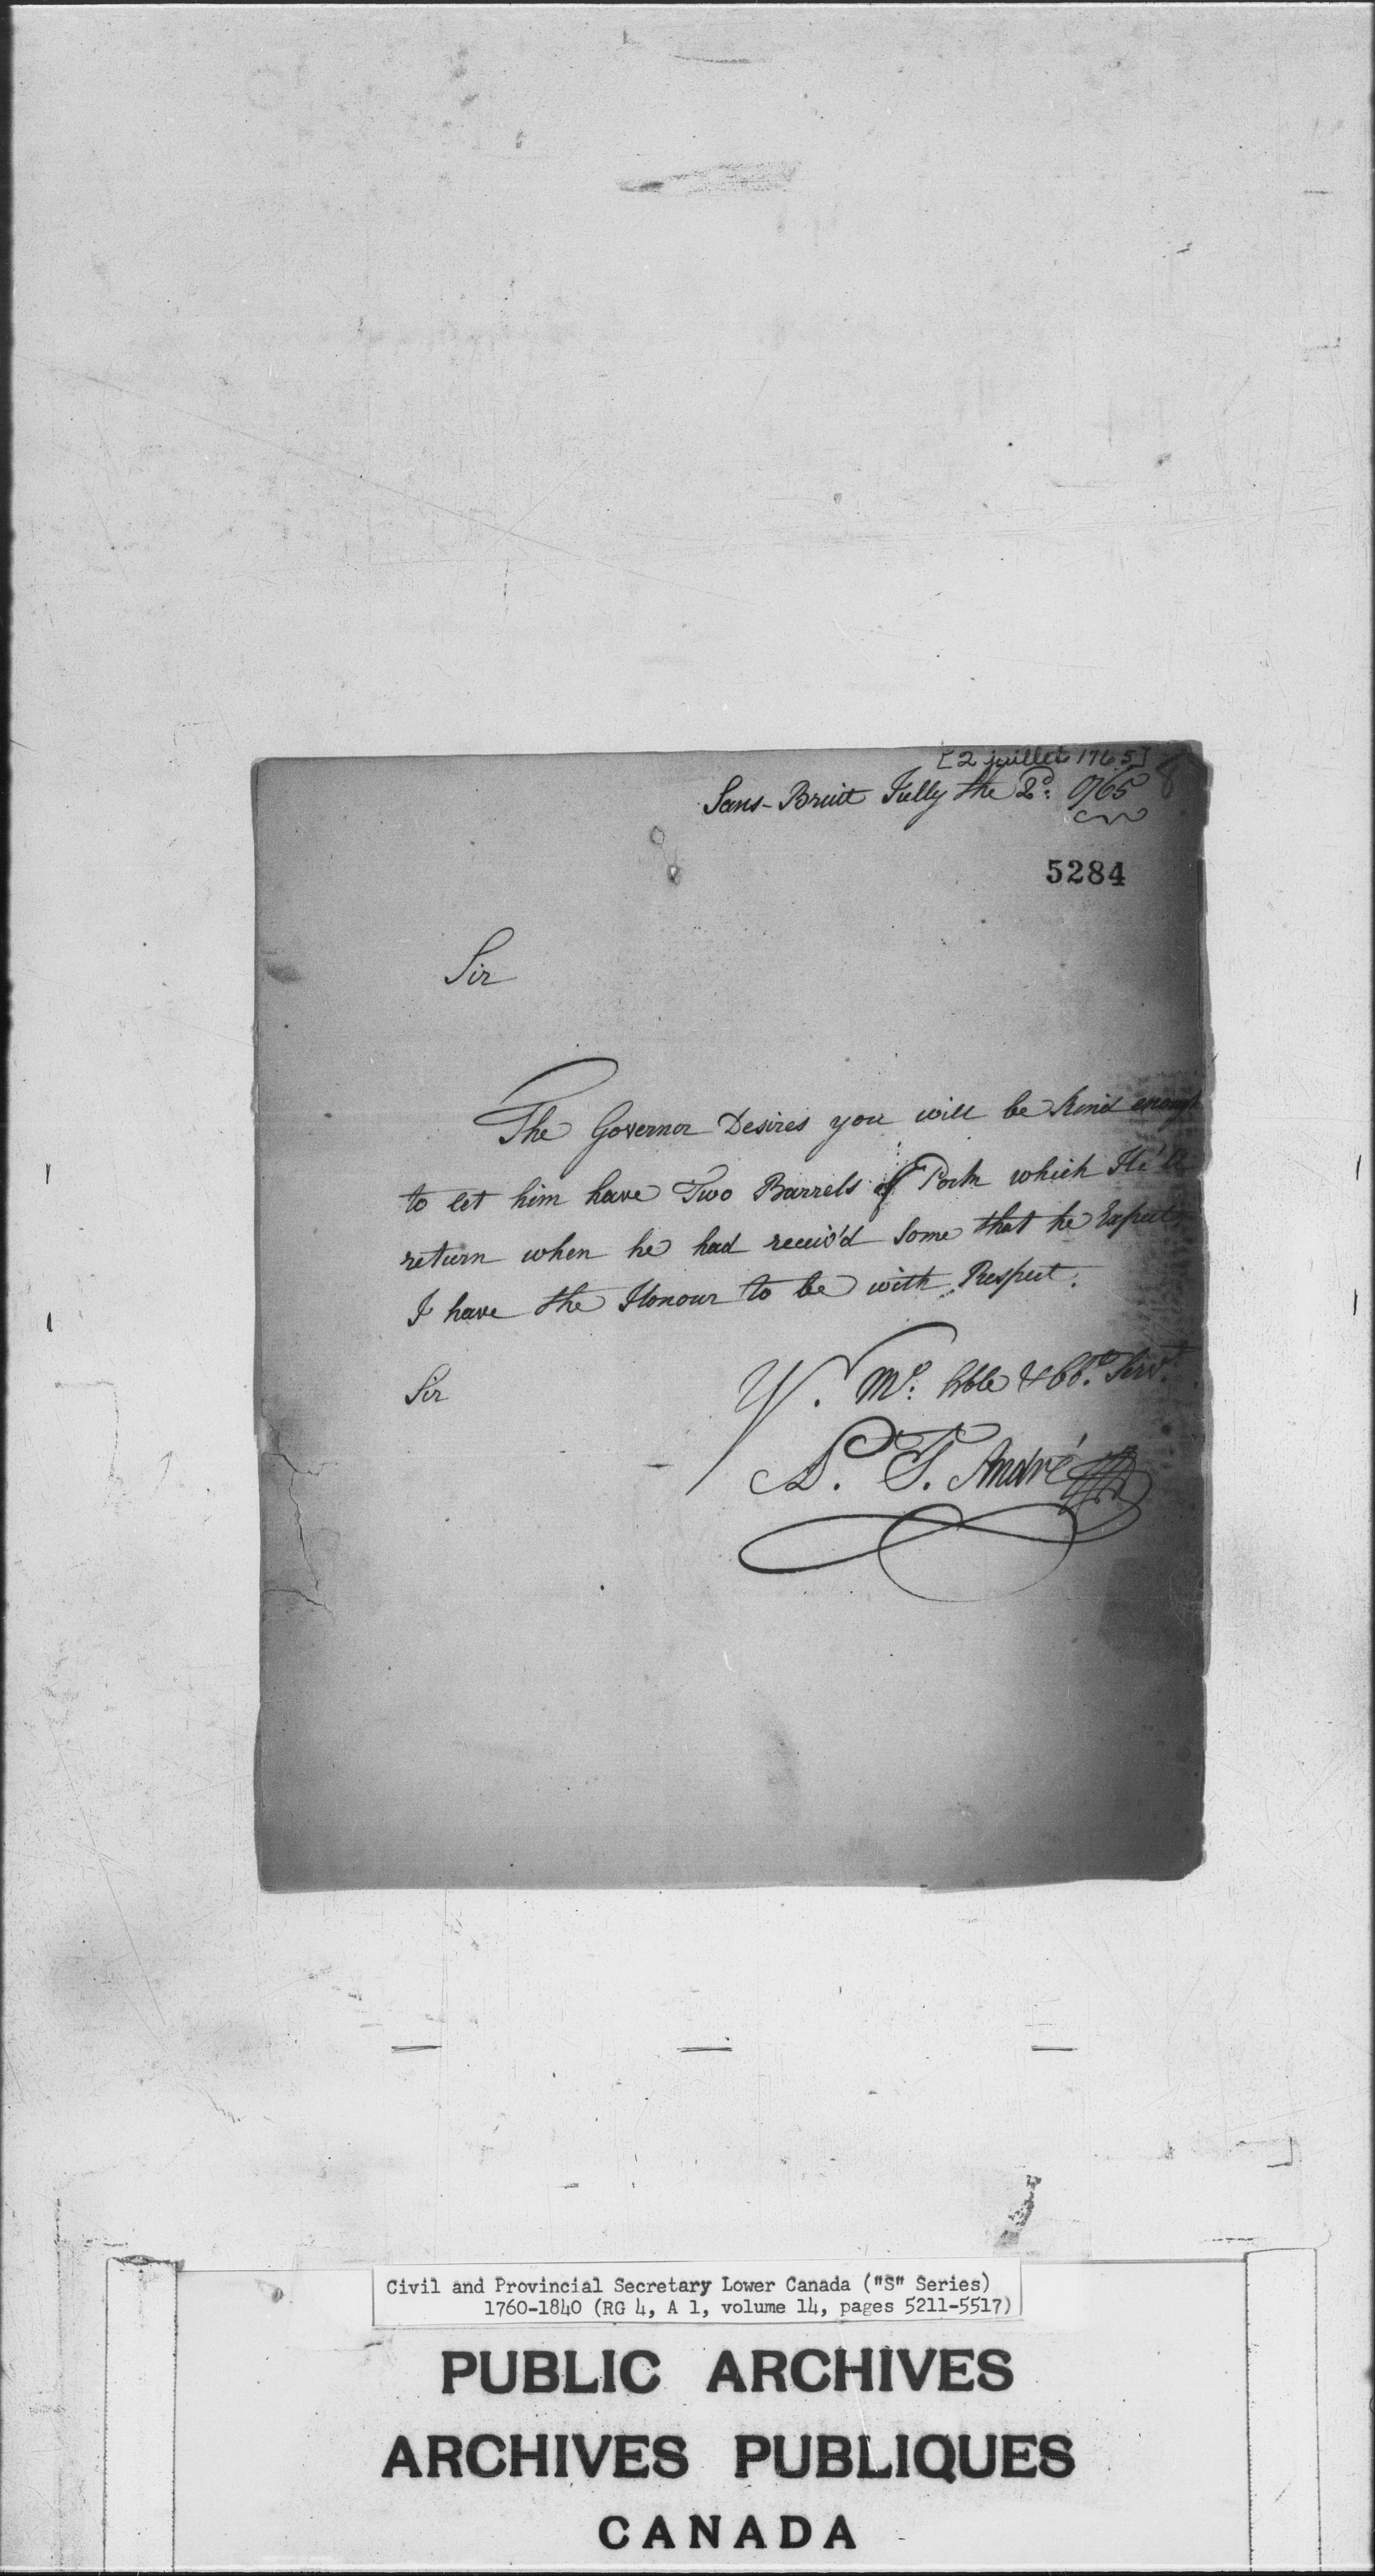 [2 juillet 1765]
Sans-Bruit Jully the 2d: 1765
8
5284
Sir
The Governor Desires you will be kind enough
to let him have Two Barrels of Pork which He'll
return when he had receiv'd some that he Expects
I have the Honour to be with Respect.
Sir
Y. Mt: hble & obt. Servt.
L. T. André
Civil and Provincial Secretary Lower Canada ("S" Series)
1760-1840 (RG 4, A 1, volume 14, pages 5211-5517)
PUBLIC ARCHIVES
ARCHIVES PUBLIQUES
CANADA